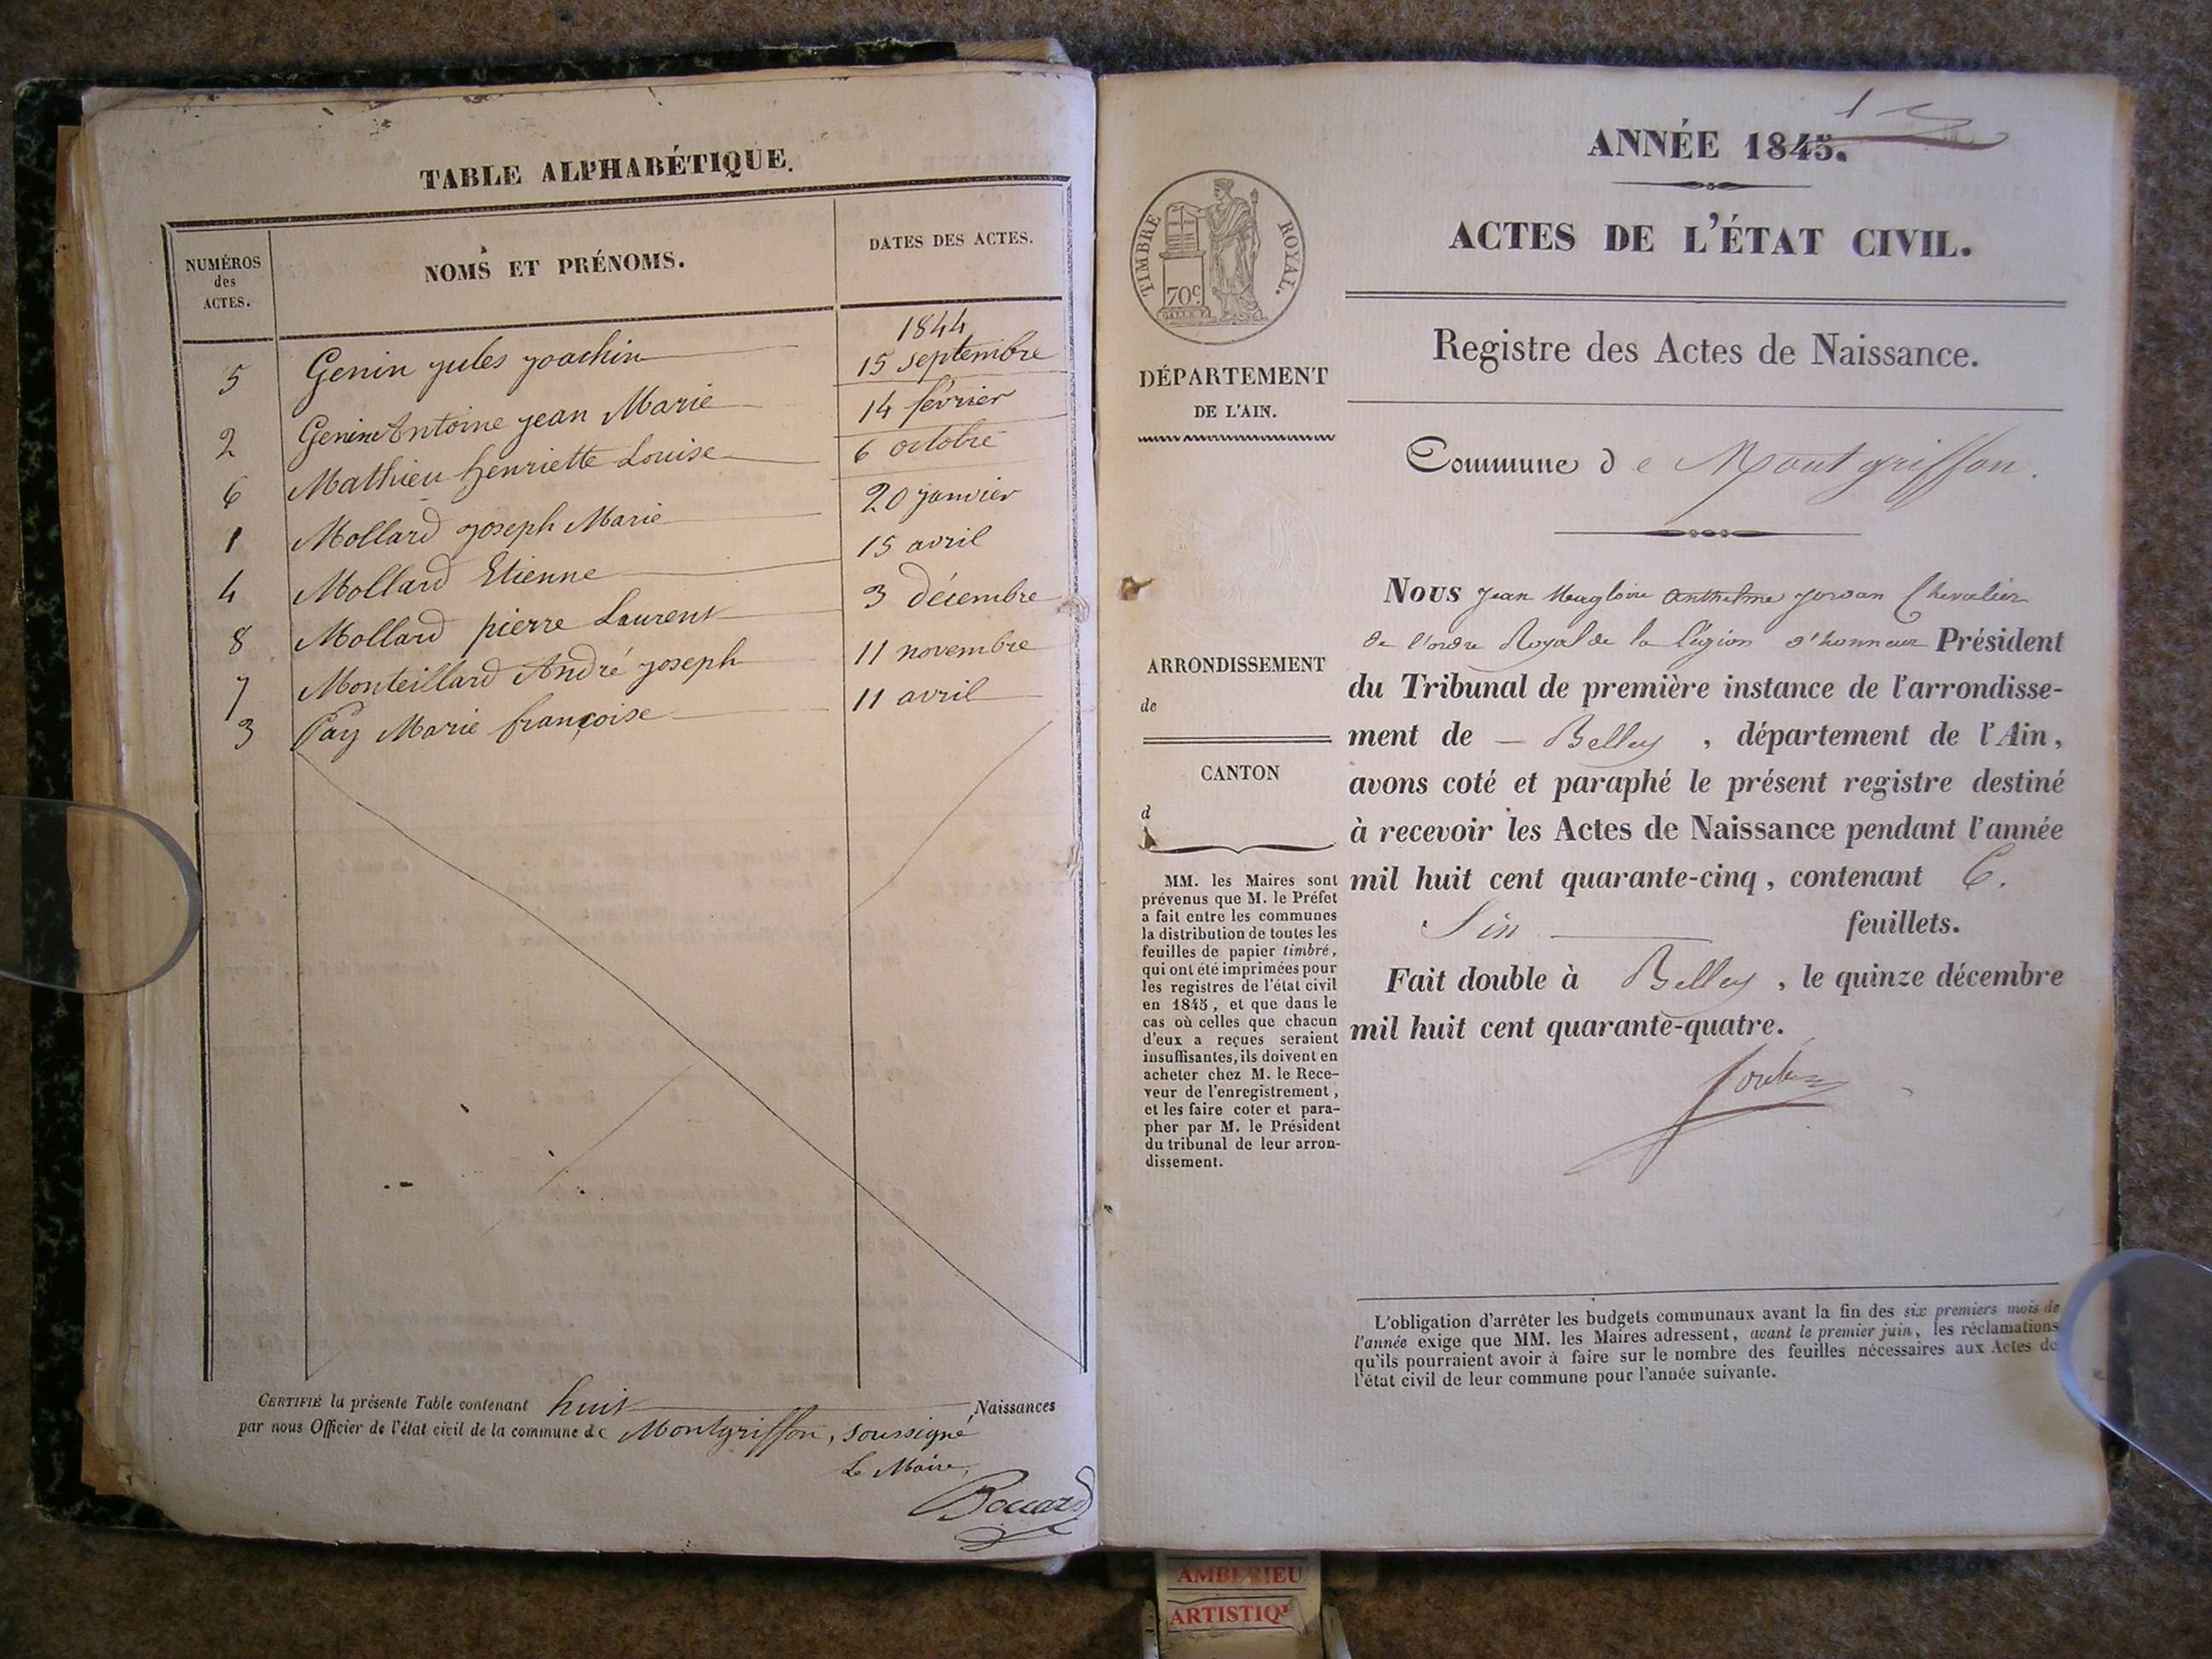 TABLE ALPHABÉTIQUE.
NUMÉROS
des
ACTES.
NOMS ET PRÉNOMS.
DATES DES ACTES.
1844
5 Genin jules joachin 15 septembre
2 Genin Antoine jean Marie 14 février
6 Mathieu henriette Louise 6 octobre
1 Mollard joseph Marie 20 janvier
4 Mollard Etienne 15 avril
8 Mollard pierre Laurent 3 décembre
7 Monteillard André joseph 11 novembre
3 Pay Marie françoise 11 avril
CERTIFIÉ la présente Table contenant huit Naissances
par nous Officier de l'état civil de la commune de Montgriffon, soussigné
Le Maire,
Boccard
1
ANNÉE 1845.
ACTES DE L'ÉTAT CIVIL.
TIMBRE ROYAL.
70c
Registre des Actes de Naissance.
DÉPARTEMENT
DE L'AIN.
Commune de Montgriffon.
ARRONDISSEMENT
de
CANTON
d
MM. les Maires sont
prévenus que M. le Préfet
a fait entre les communes
la distribution de toutes les
feuilles de papier timbré,
qui ont été imprimées pour
les registres de l'état civil
en 1845, et que dans le
cas où celles que chacun
d'eux a reçues seraient
insuffisantes, ils doivent en
acheter chez M. le Rece-
veur de l'enregistrement,
et les faire coter et para-
pher par M. le Président
du tribunal de leur arron-
dissement.
NOUS Jean Magloire Anthelme Jordan Chevalier
de l'ordre Royal de la Légion d'honneur Président
du Tribunal de première instance de l'arrondisse-
ment de Belley, département de l'Ain,
avons coté et paraphé le présent registre destiné
à recevoir les Actes de Naissance pendant l'année
mil huit cent quarante-cinq, contenant 6.
Six feuillets.
Fait double à Belley, le quinze décembre
mil huit cent quarante-quatre.
L'obligation d'arrêter les budgets communaux avant la fin des six premiers mois de
l'année exige que MM. les Maires adressent, avant le premier juin, les réclamations
qu'ils pourraient avoir à faire sur le nombre des feuilles nécessaires aux Actes de
l'état civil de leur commune pour l'année suivante.
AMBERIEU
ARTISTIQ